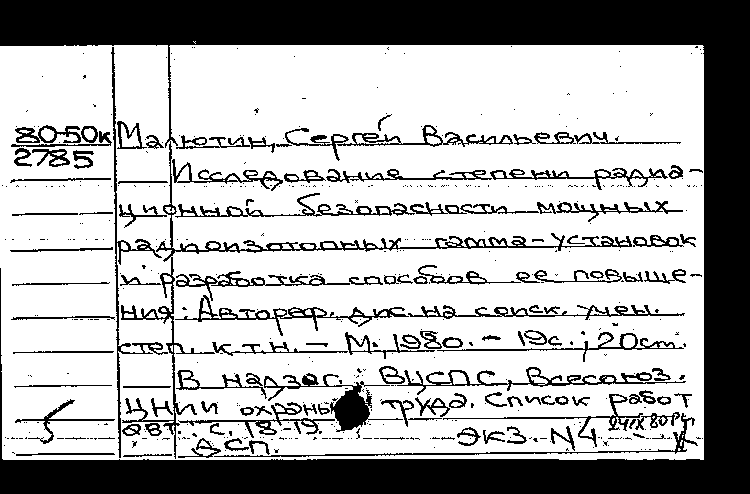 80-50к Малютин, Сергей Васильевич.
2785
Исследование степени радиа-
ционной безопасности мощных
радиоизотопных гамма-установок
и разработка способов ее повыше-
ния: Автореф. дис. на соиск. учен.
степ. к.т.н. - М., 1980. - 19с.; 20см.
В надзаг. ВЦСПС, Всесоюз.
ЦНИИ охраны труда. Список работ
авт. с. 18-19.
ДСП. Экз. N4.